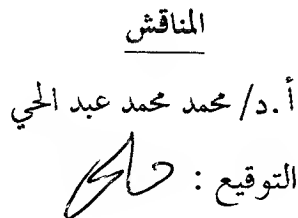 المناقش
أ.د/ محمد محمد عبد الحي
التوقيع :